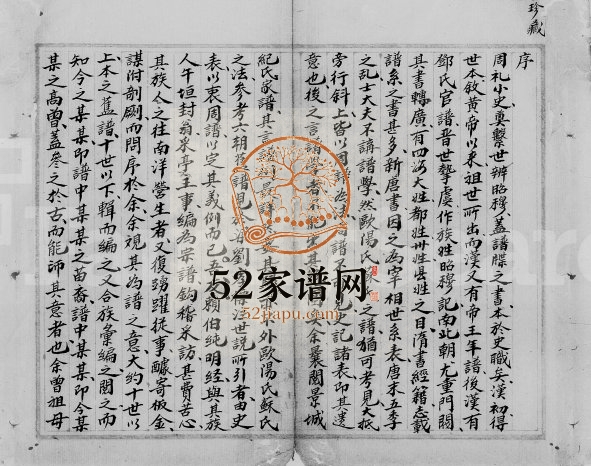 珍藏
序
周礼小史奠繫世辨昭穆蓋譜牒之書本於史職矣漢初得
世本敘黃帝以來祖世所出而漢又有帝王年譜後漢有
鄧氏官譜晋世摯虞作族姓昭穆記南北朝尤重門閥
其書轉廣有四海大姓郡姓州姓县姓之目隋書經籍志載
譜系之書甚多新唐書因之為宰相世系表唐末五季
之乱士大夫不講譜學然歐陽氏 氏之譜猶可考見大抵
旁行斜上皆以 之記諸表即其遺
意也後之言譜學者不能 余曩閱景城
紀氏家譜其言 外歐陽氏蘇氏
之法参考六朝 譜見 劉 注世說所引者由史
表以衷周譜以定其義例而已吾 願伯純明经與其族
人午垣封翁采亭主事編為宗譜鈎稽采訪其費苦心
其族人之往南洋營生者又復踴躍從事醵寄板金
謀付剞劂而問序於余余視其為譜之意大約十世以
上本之舊譜十世以下輯而編之又合族彙編之閱之而
知今之某某即譜中某某之苗裔譜中某某即今某
某之高曽蓋参之於古而能師其意者也余曽祖母
52家谱网
52jiapu.com